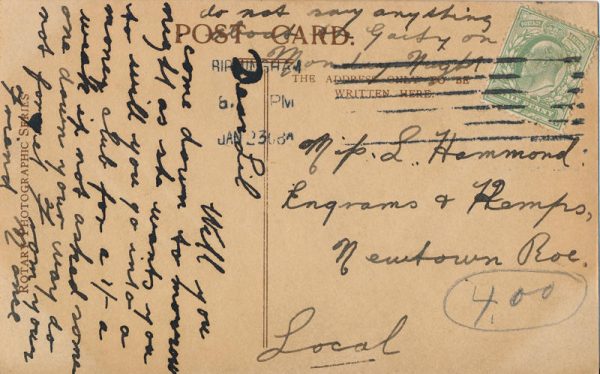 POST CARD.
do not say anything
about Gaity on
Monday Night
BIRMINGHAM
6. PM
JAN 23 08
THE ADDRESS ONLY TO BE
WRITTEN HERE.
Dear Lil
Will you
come down to morrow
night as she wants you
to will you go into a
money club for a 1/- a
week if not asked some
one down your way do
not forget from your
Friend
ROTARY PHOTOGRAPHIC SERIES
L. Hammond:
Engrams & Kemps,
Newtown Roe.
Local
4.00